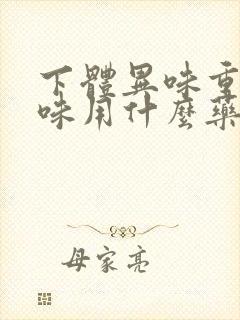 下體異味重
味用什麼藥
母家亮